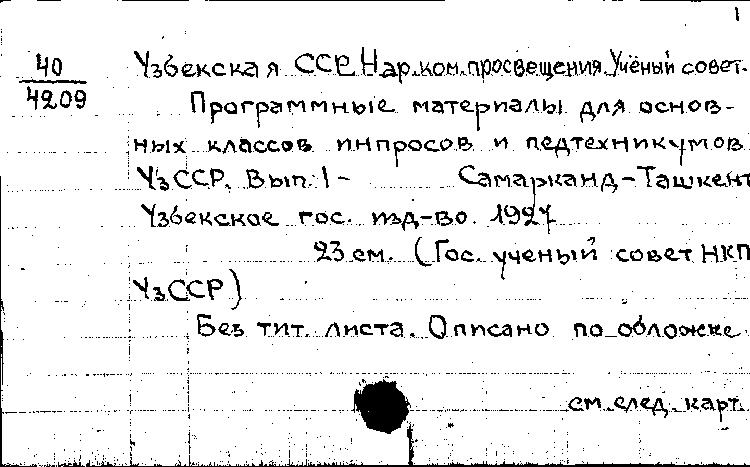 1
40
4209
Узбекская ССР. Нар.ком.просвещения. Учёный совет.
Программные материалы для основ-
ных классов инпросов и педтехникумов
УзССР. Вып. 1 - Самарканд-Ташкент
Узбекское гос. изд-во. 1927
23 см. (Гос. ученый совет НКП
УзССР)
Без тит. листа. Описано по обложке.
см. след. карт.